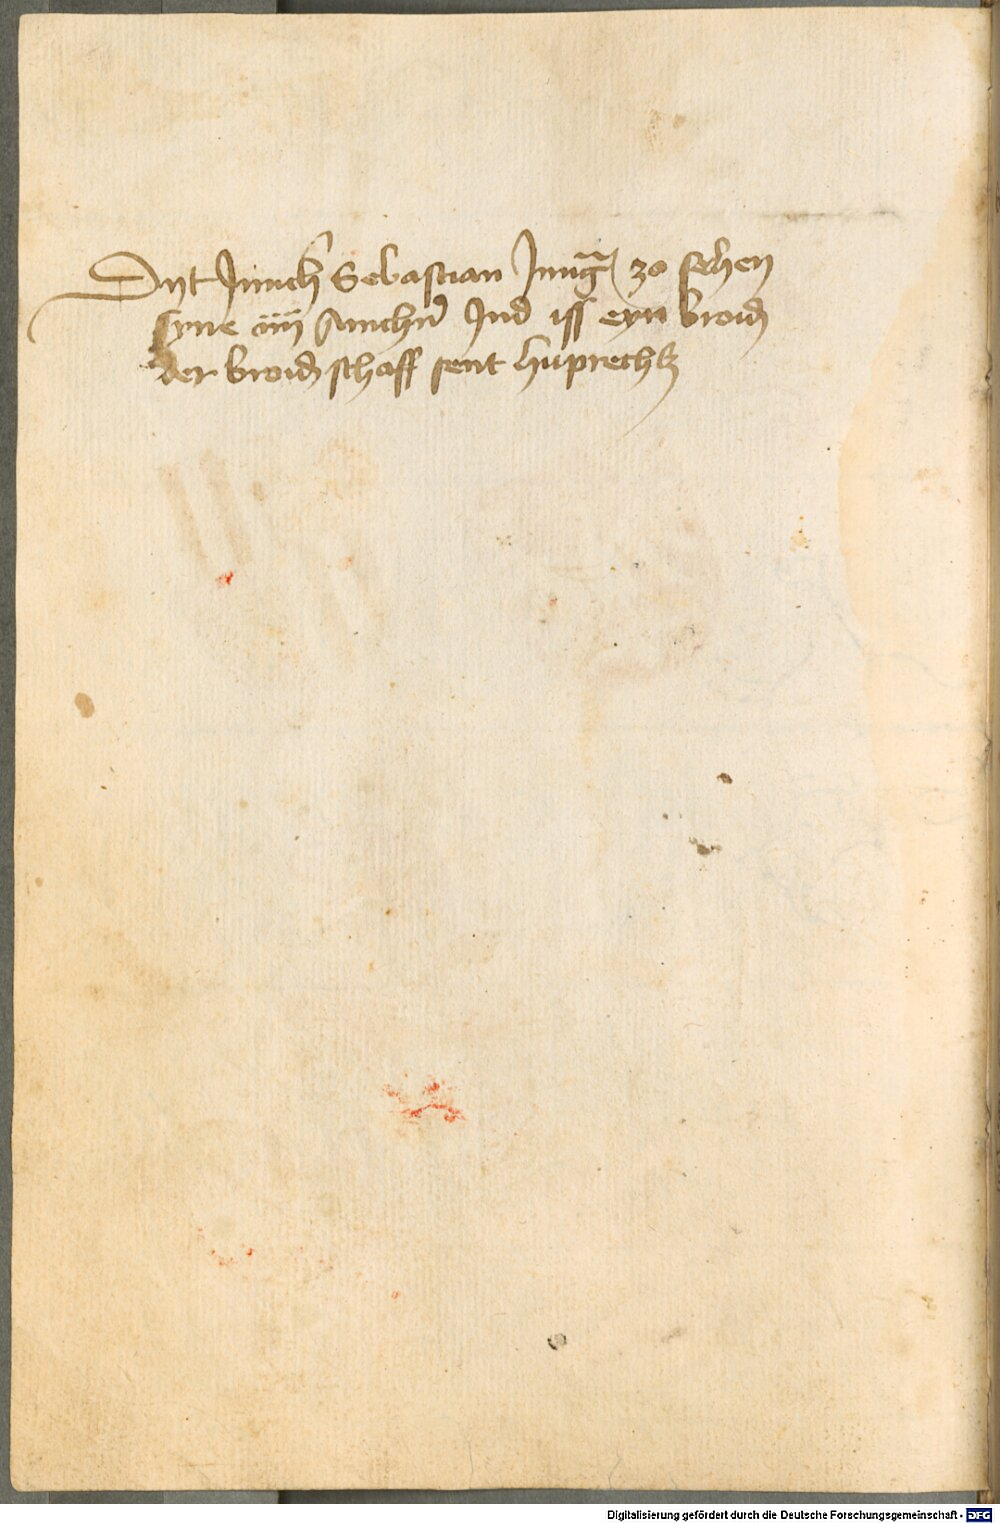 Dyt Junch Sebastian Jung zo sehen
syne iiij Anchen Ind iss eyn broid
der broidschaff sent huprechtz
Digitalisierung gefördert durch die Deutsche Forschungsgemeinschaft - DFG